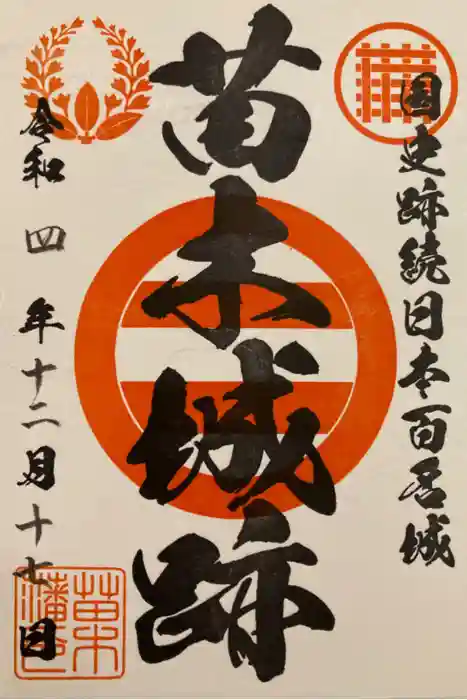 国史跡続日本百名城
苗木城跡
令和四年十二月十七日